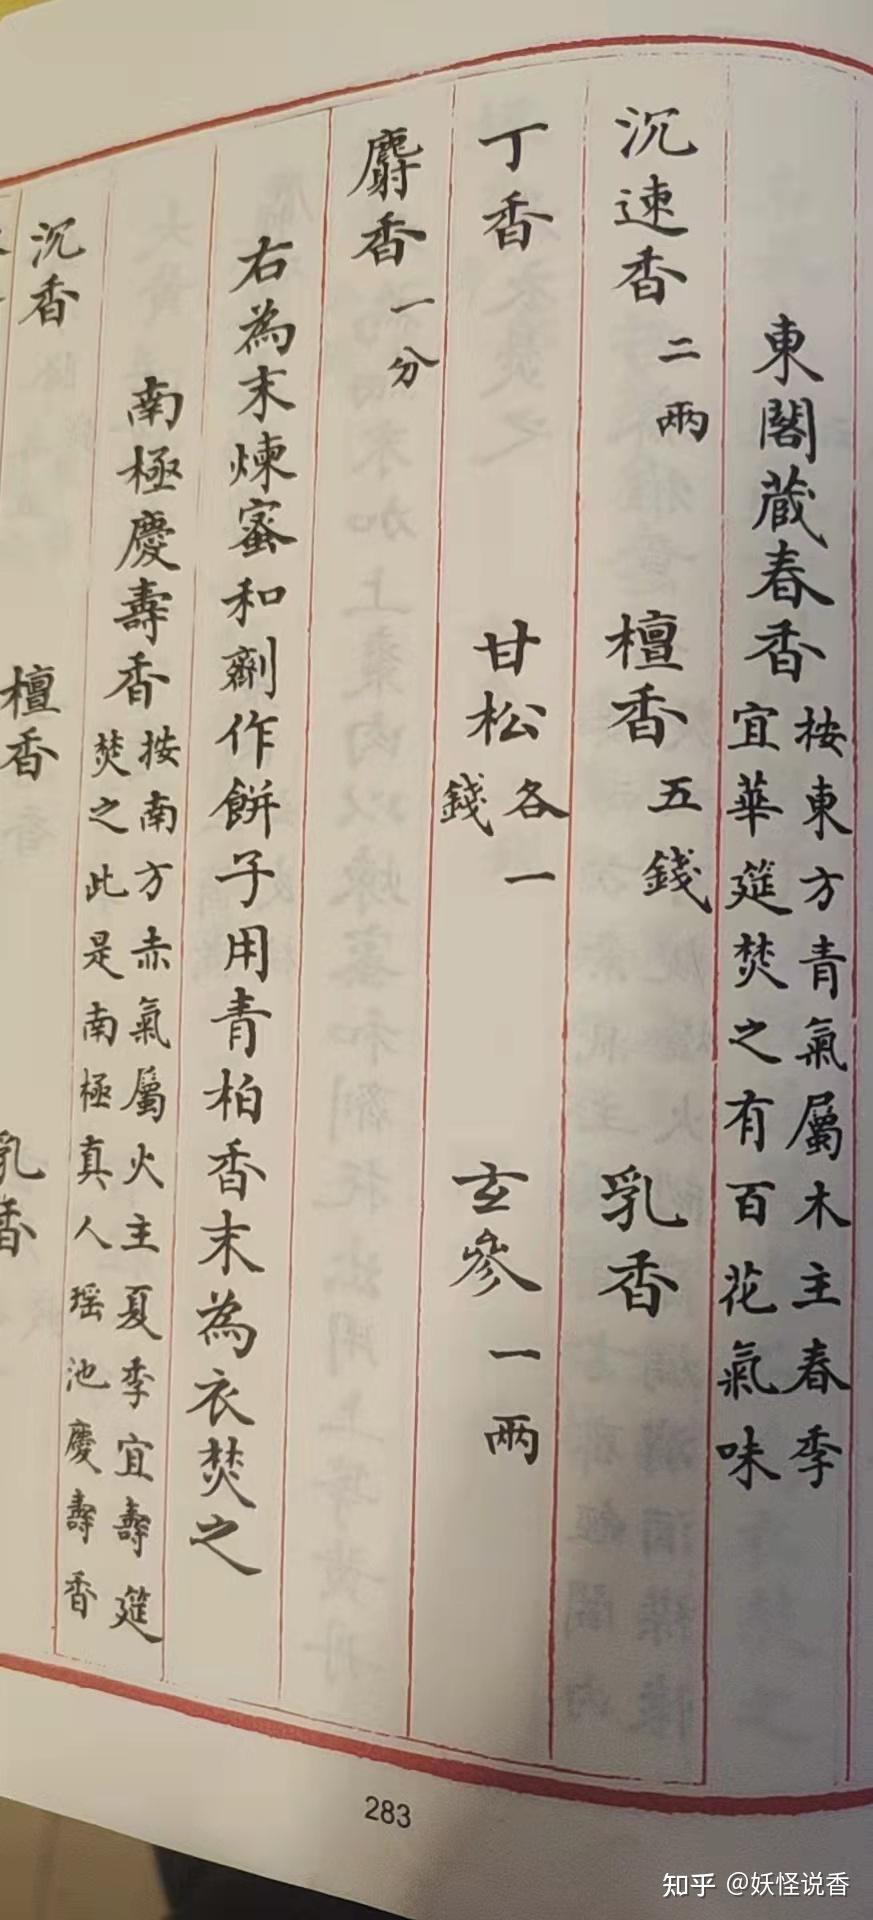 東閣藏春香 按東方青氣屬木主春季
宜華筵焚之有百花氣味
沉速香 二兩 檀香 五錢 乳香
丁香 甘松 各一
錢 玄參 一兩
麝香 一分
右為末煉蜜和劑作餅子用青柏香末為衣焚之
南極慶壽香 按南方赤氣屬火主夏季宜壽筵
焚之此是南極真人瑶池慶壽香
沉香 檀香 乳香
283
知乎 @妖怪说香